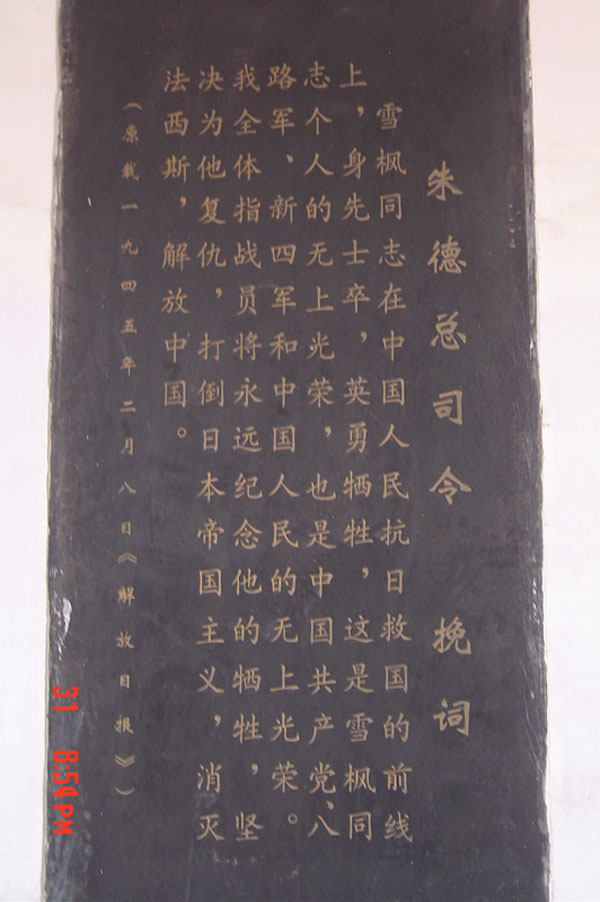 朱德总司令 挽词
雪枫同志在中国人民抗日救国的前线
上，身先士卒，英勇牺牲，这是雪枫同
志个人的无上光荣，也是中国共产党、八
路军、新四军和中国人民的无上光荣。
我全体指战员将永远纪念他的牺牲，坚
决为他复仇，打倒日本帝国主义，消灭
法西斯，解放中国。
（原载一九四五年二月八日《解放日报》）
31 8:54 PM